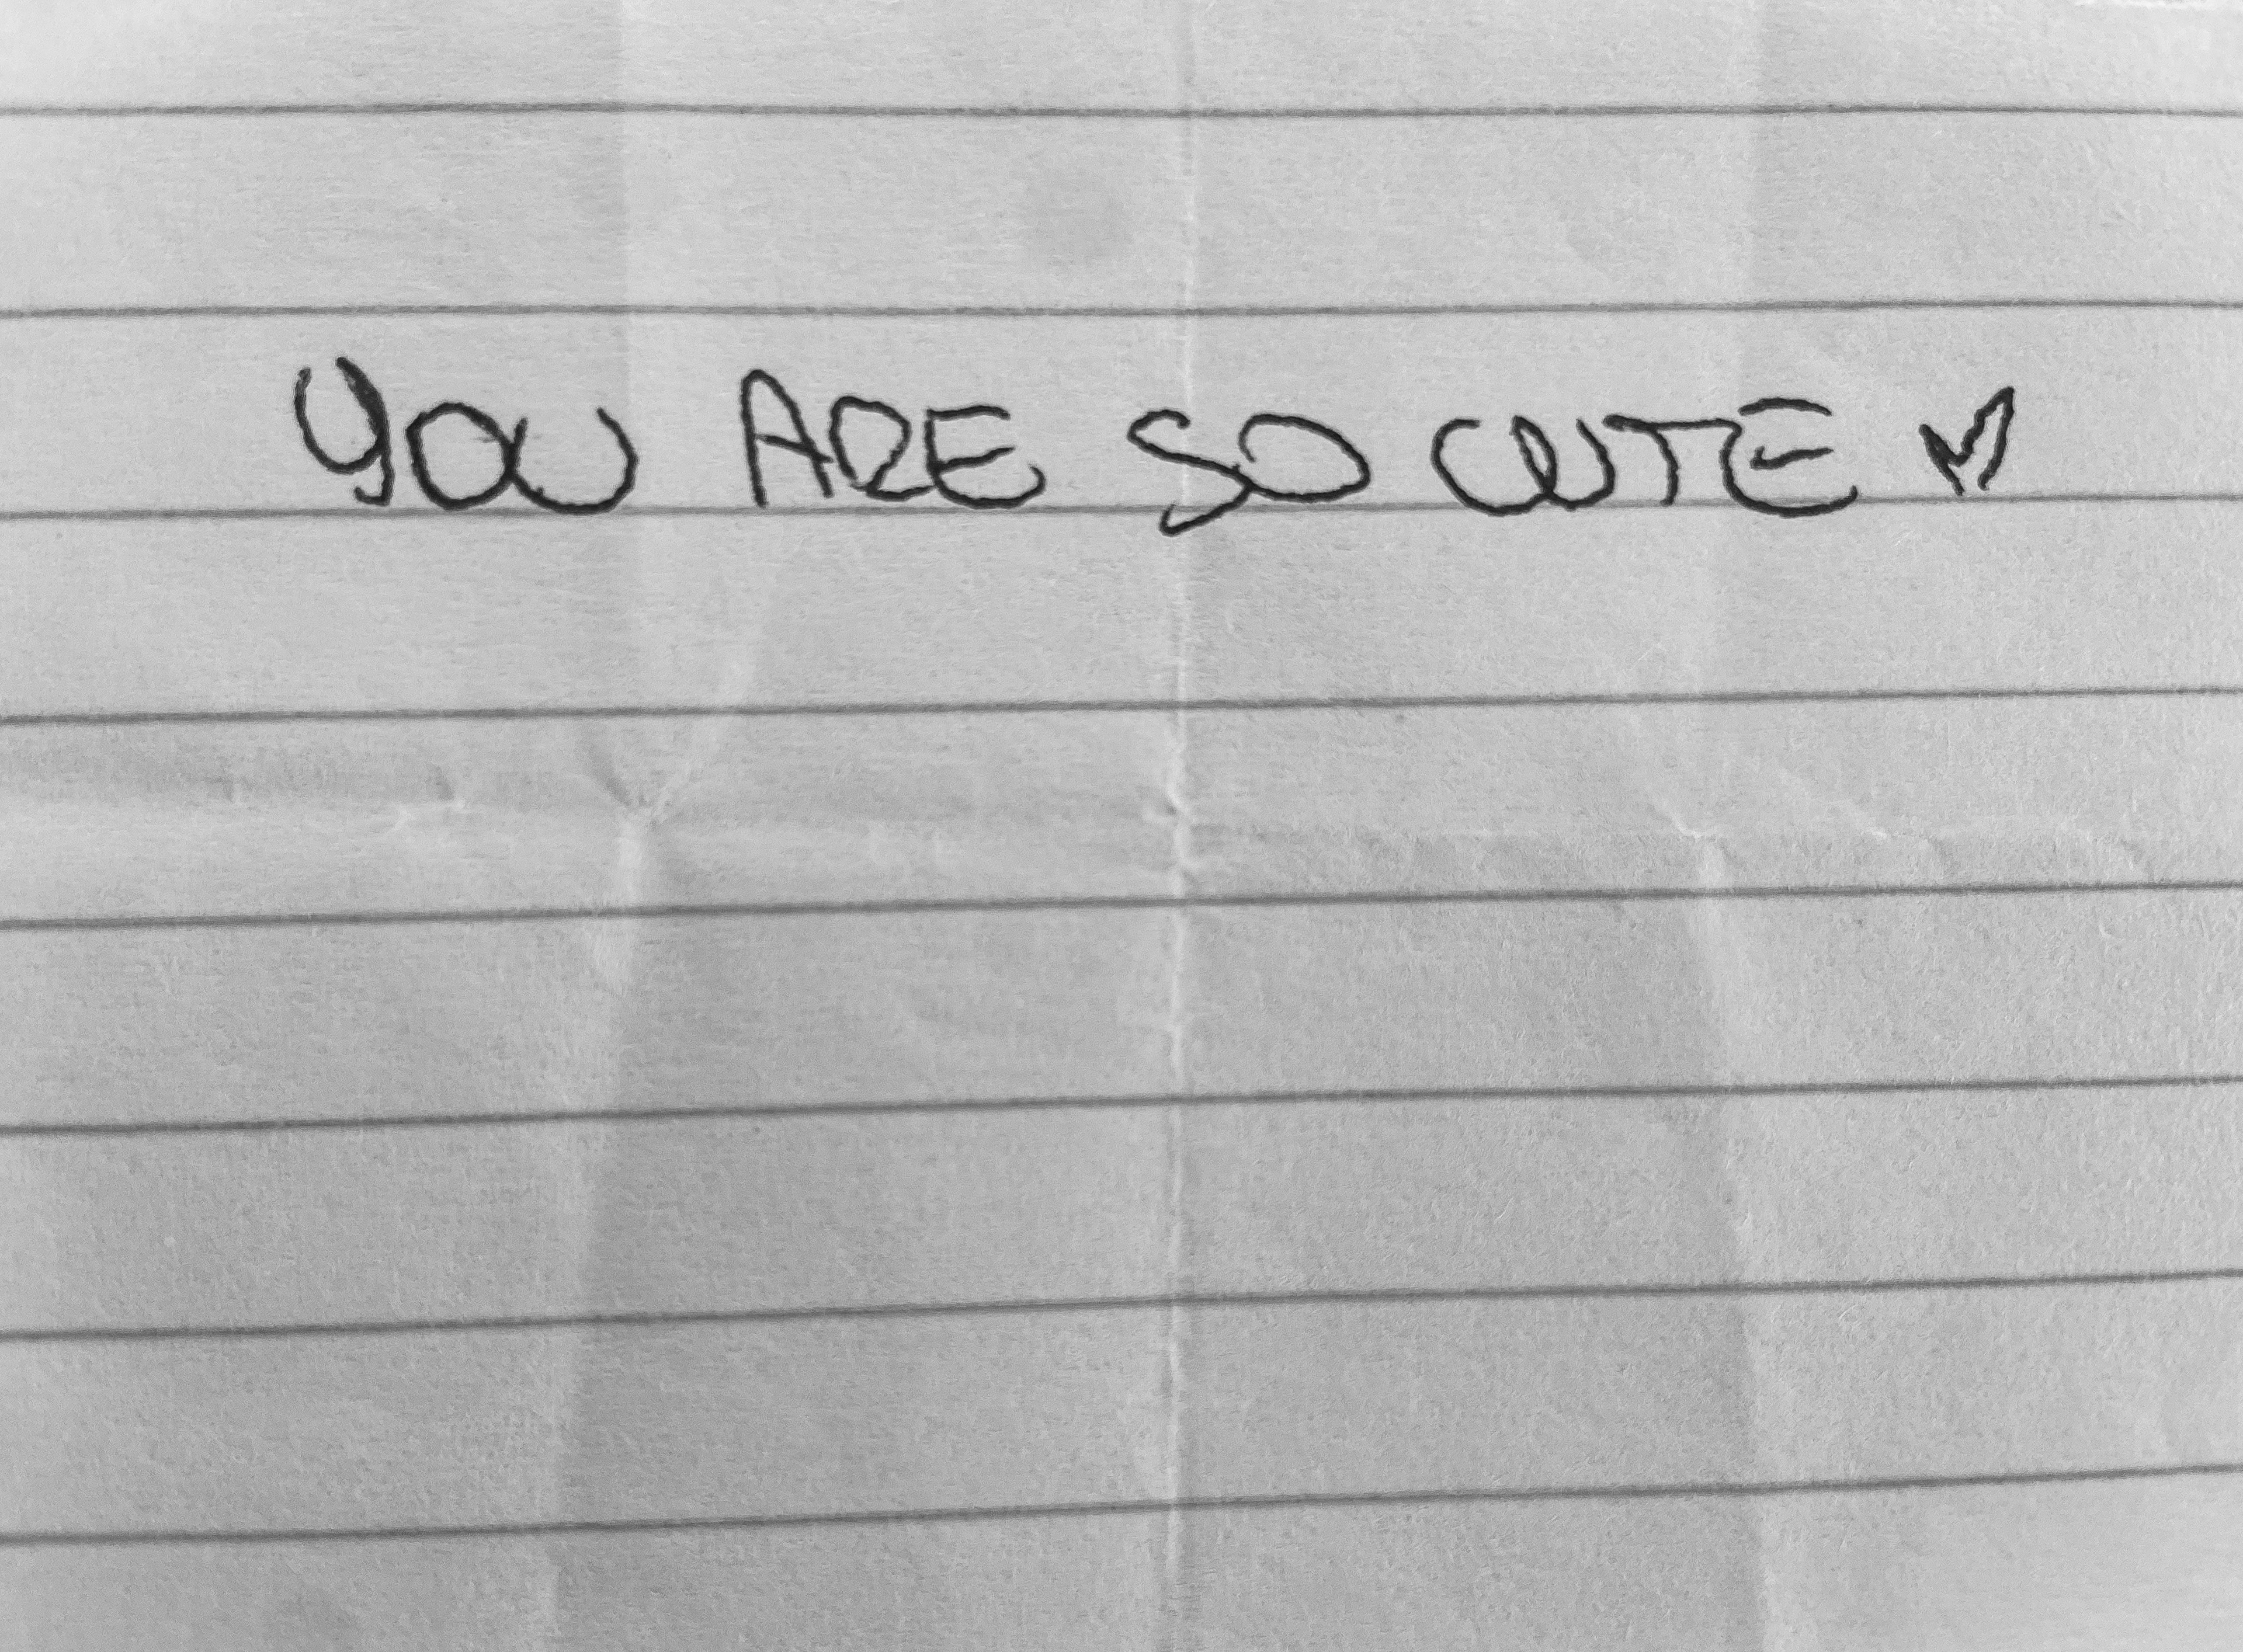 YOU ARE SO CUTE ♥